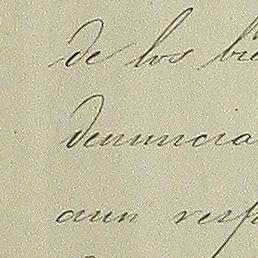 de los bie
denuncia
aun resp